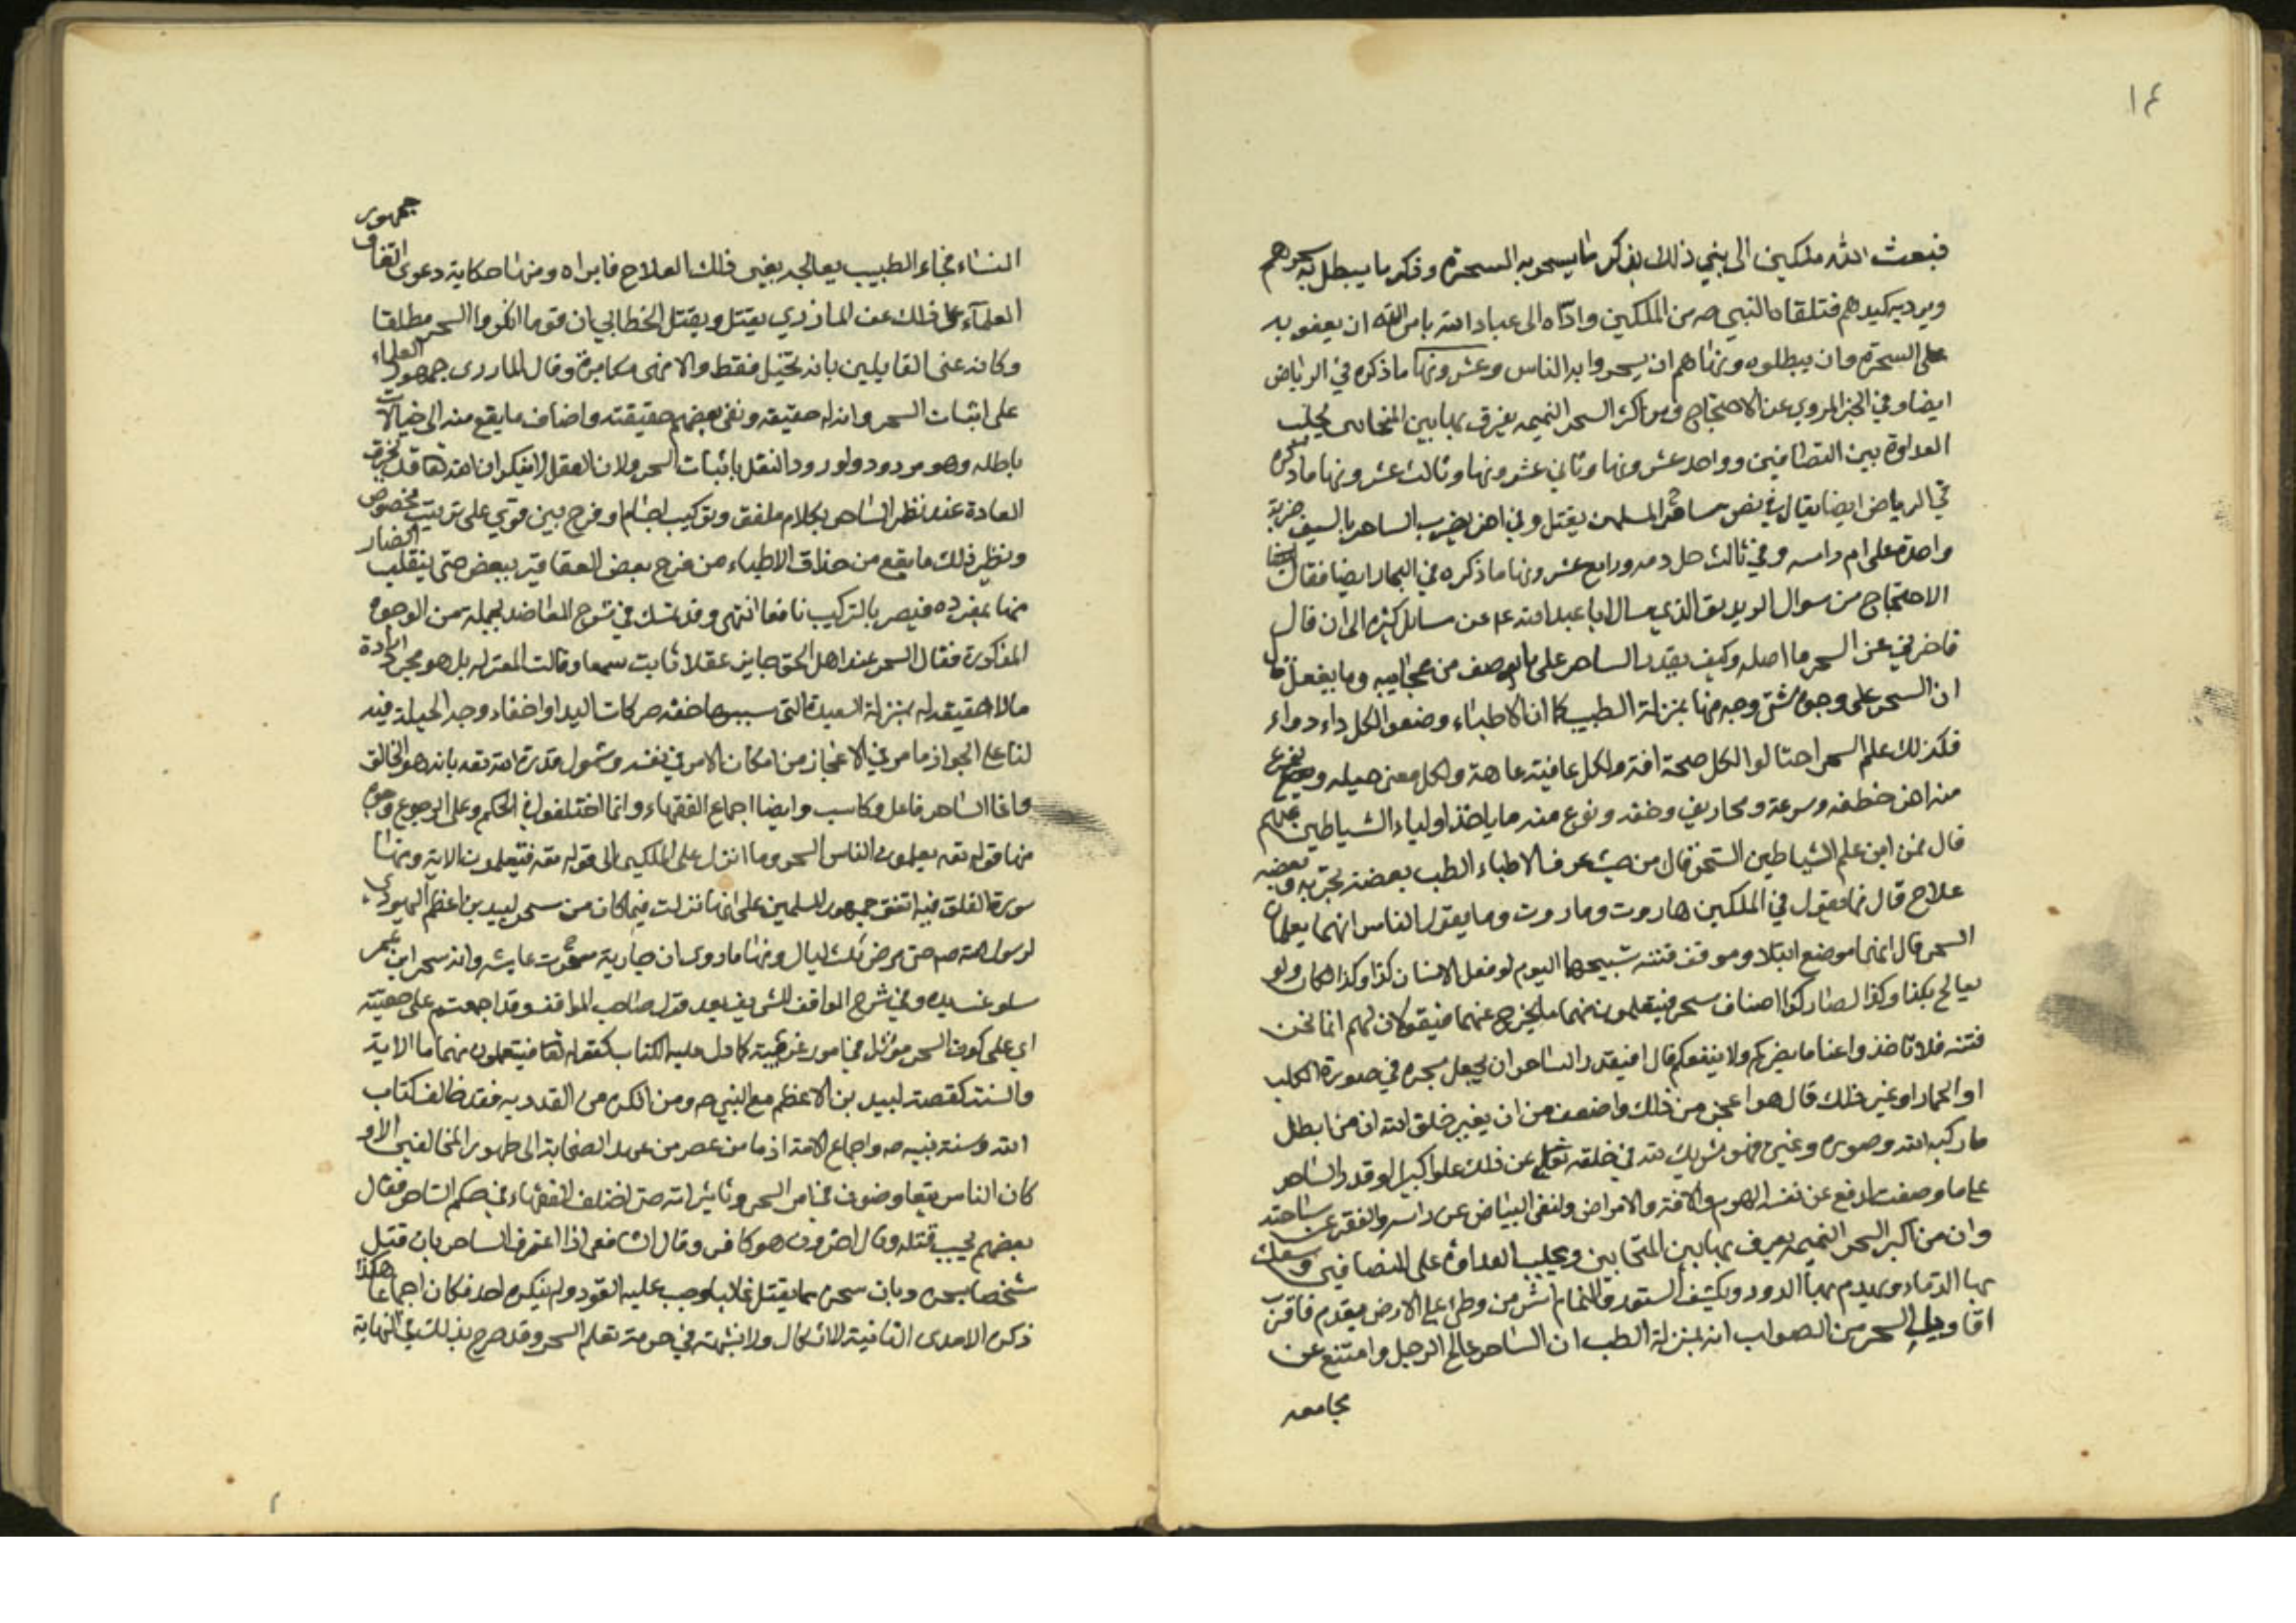 ١٤
فبعث الله ملكين الى نبي ذلك بذكر ما يسحر به السحرة وذكر ما يبطل به سحرهم
ويرد به كيدهم فتلقاه النبي ص من الملكين واداه الى عباد الله بامر الله ان يعفو به
على السحرة وان يبطلوه ونهاهم ان يسحروا به الناس وعشر ونها ما ذكره في الرياض
ايضا وفي الخبر المروي عن الاحتجاج ومن اكثر السحر النميمه يفرق بها بين المتحابين يجلب
العداوة بين المتصافيين وواحد عشر ونها وثاني عشر ونها وثالث عشر ونها ما ذكره
في الرياض ايضا يقال في نص ساحر المسلمين يقتل وفي اخر يضرب الساحر بالسيف ضربة
واحدة على ام راسه وفي ثالث حل دمه ورابع عشر ونها ما ذكره في البحار ايضا فقال
الاحتجاج من سوال الزنديق الذي سال ابا عبد الله ع عن مسايل كثيره الى ان قال
فاخبرني عن السحر ما اصله وكيف يقدر الساحر على ما يوصف من عجايبه وما يفعل قال
ان السحر على وجوه شتى وجه منها بمنزلة الطب كما ان الاطباء وضعوا لكل داء دواء
فكذلك علم السحر احتالوا لكل صحة افة ولكل عافية عاهة ولكل معنى حيله ونوع
منه اخر خطفه وسرعة ومخاريق وخفه ونوع منه ما ياخذ اولياء الشياطين عنهم
قال فمن اين علم الشياطين السحر قال من حيث عرف الاطباء الطب بعضه تجربه وبعضه
علاج قال فما تقول في الملكين هاروت وماروت وما يقول الناس انهما يعلمان
السحر قال انهما موضع ابتلاء وموقف فتنه تسبيحهما اليوم لو فعل الانسان كذا وكذا لكان ولو
يعالج بكذا وكذا لصار كذا اصناف سحر فيتعلمون منهما ما يخرج عنهما فيقولان لهم انما نحن
فتنه فلا تاخذوا عنا ما يضركم ولا ينفعكم قال افيقدر الساحر ان يجعل بسحره في صورة الكلب
او الحمار او غير ذلك قال هو اعجز من ذلك واضعف من ان يغير خلق الله ان من ابطل
ما ركبه الله وصوره وغيره فهو شريك لله في خلقه تعالى عن ذلك علوا كبيرا لو قدر الساحر
على ما وصفت لدفع عن نفسه الهرم والافة والامراض ولنفى البياض عن راسه والفقر عن ساحته
وان من اكبر السحر النميمه يفرق بها بين المتحابين ويجلب العداوة على المتصافيين ويسفك
بها الدماء ويهدم بها الدور ويكشف الستور والنمام اشر من وطئ على الارض بقدم فاقرب
اقاويل السحر من الصواب انه بمنزلة الطب ان الساحر عالج الرجل وامتنع عن
مجامعه
النساء فجاء الطبيب يعالجه بغير ذلك العلاج فابراه ومنها حكاية دعوى اتفاق
جمهور
العلماء على ذلك عن المازري يقتل ويقتل الخطابي ان قوما انكروا السحر مطلقا
وكانه عنى القايلين بانه تخيل فقط والا فهي مكابرة وقال المازري جمهور العلماء
على اثبات السحر وانه له حقيقه ونفى بعضهم حقيقته واضاف ما يقع منه الى خيالات
باطله وهو مردود ولورود النقل باثبات السحر ولان العقل لا ينكر ان الله تعالى قد يخرق
العادة عند نظر الساحر بكلام ملفق وتركيب اجسام او مزج بين قوي على ترتيب مخصوص
ونظير ذلك ما يقع من حذاق الاطباء من مزج بعض العقاقير ببعض حتى ينقلب الضار
منها بمفرده فيصير بالتركيب نافعا انتهى وقد تمسك في شرح المقاصد بجمله من الوجوه
المذكورة فقال السحر عند اهل الحق جايز عقلا ثابت سمعا وقالت المعتزله بل هو مجرد ارادة
مالا حقيقه له بمنزلة الشعبدة التي سببها خفه حركات اليد او اخفاء وجه الحيلة فيه
لنا على الجواز ما مر في الاعجاز من امكان الامر في نفسه وشمول قدرة الله تعه بانه هو الخالق
وانما الساحر فاعل وكاسب وايضا اجماع الفقهاء وانما اختلفوا في الحكم وعلى الوجوع وجوه
منها قوله تعه يعلمون الناس السحر وما انزل على الملكين الى قوله تعه فيتعلمون الاية ومنها
سورة الفلق فيه اتفق جمهور المسلمين على انها نزلت فيما كان من سحر لبيد بن اعظم اليهودي
لرسول الله ص حتى مرض ثلث ليال ومنها ما روى ان جارية سحرت عايشه وانه سحر ابن عمر
وفي شرح المواقف للشريف بعد قول صاحب المواقف وقد اجمعتم على حقيته
اي على كون السحر مؤثرا في امور غريبة كما دل عليه الكتاب كقوله تعا فيتعلمون منهما ما الاية
والسنة كقصة لبيد بن الاعظم مع النبي ص ومن انكره من القدريه فقد خالف كتاب
الله وسنة نبيه ص واجماع الامة اذ ما من عصر من عهد الصحابة الى ظهور المخالفين الا و
كان الناس يتفاوضون في امر السحر وتاثيراته حتى اختلف الفقهاء في حكم الساحر فقال
بعضهم يجب قتله وقال اخرون هو كافر وقال الشافعي اذا اعترف الساحر بان قتل
شخصا بسحره وبان سحره مما يقتل غالبا وجب عليه القود ولم ينكره احد فكان اجماعا هكذا
ذكره الامدى الثانية لا اشكال ولا شبهة في حرمة تعلم السحر وقد صرح بذلك شيخ النهاية